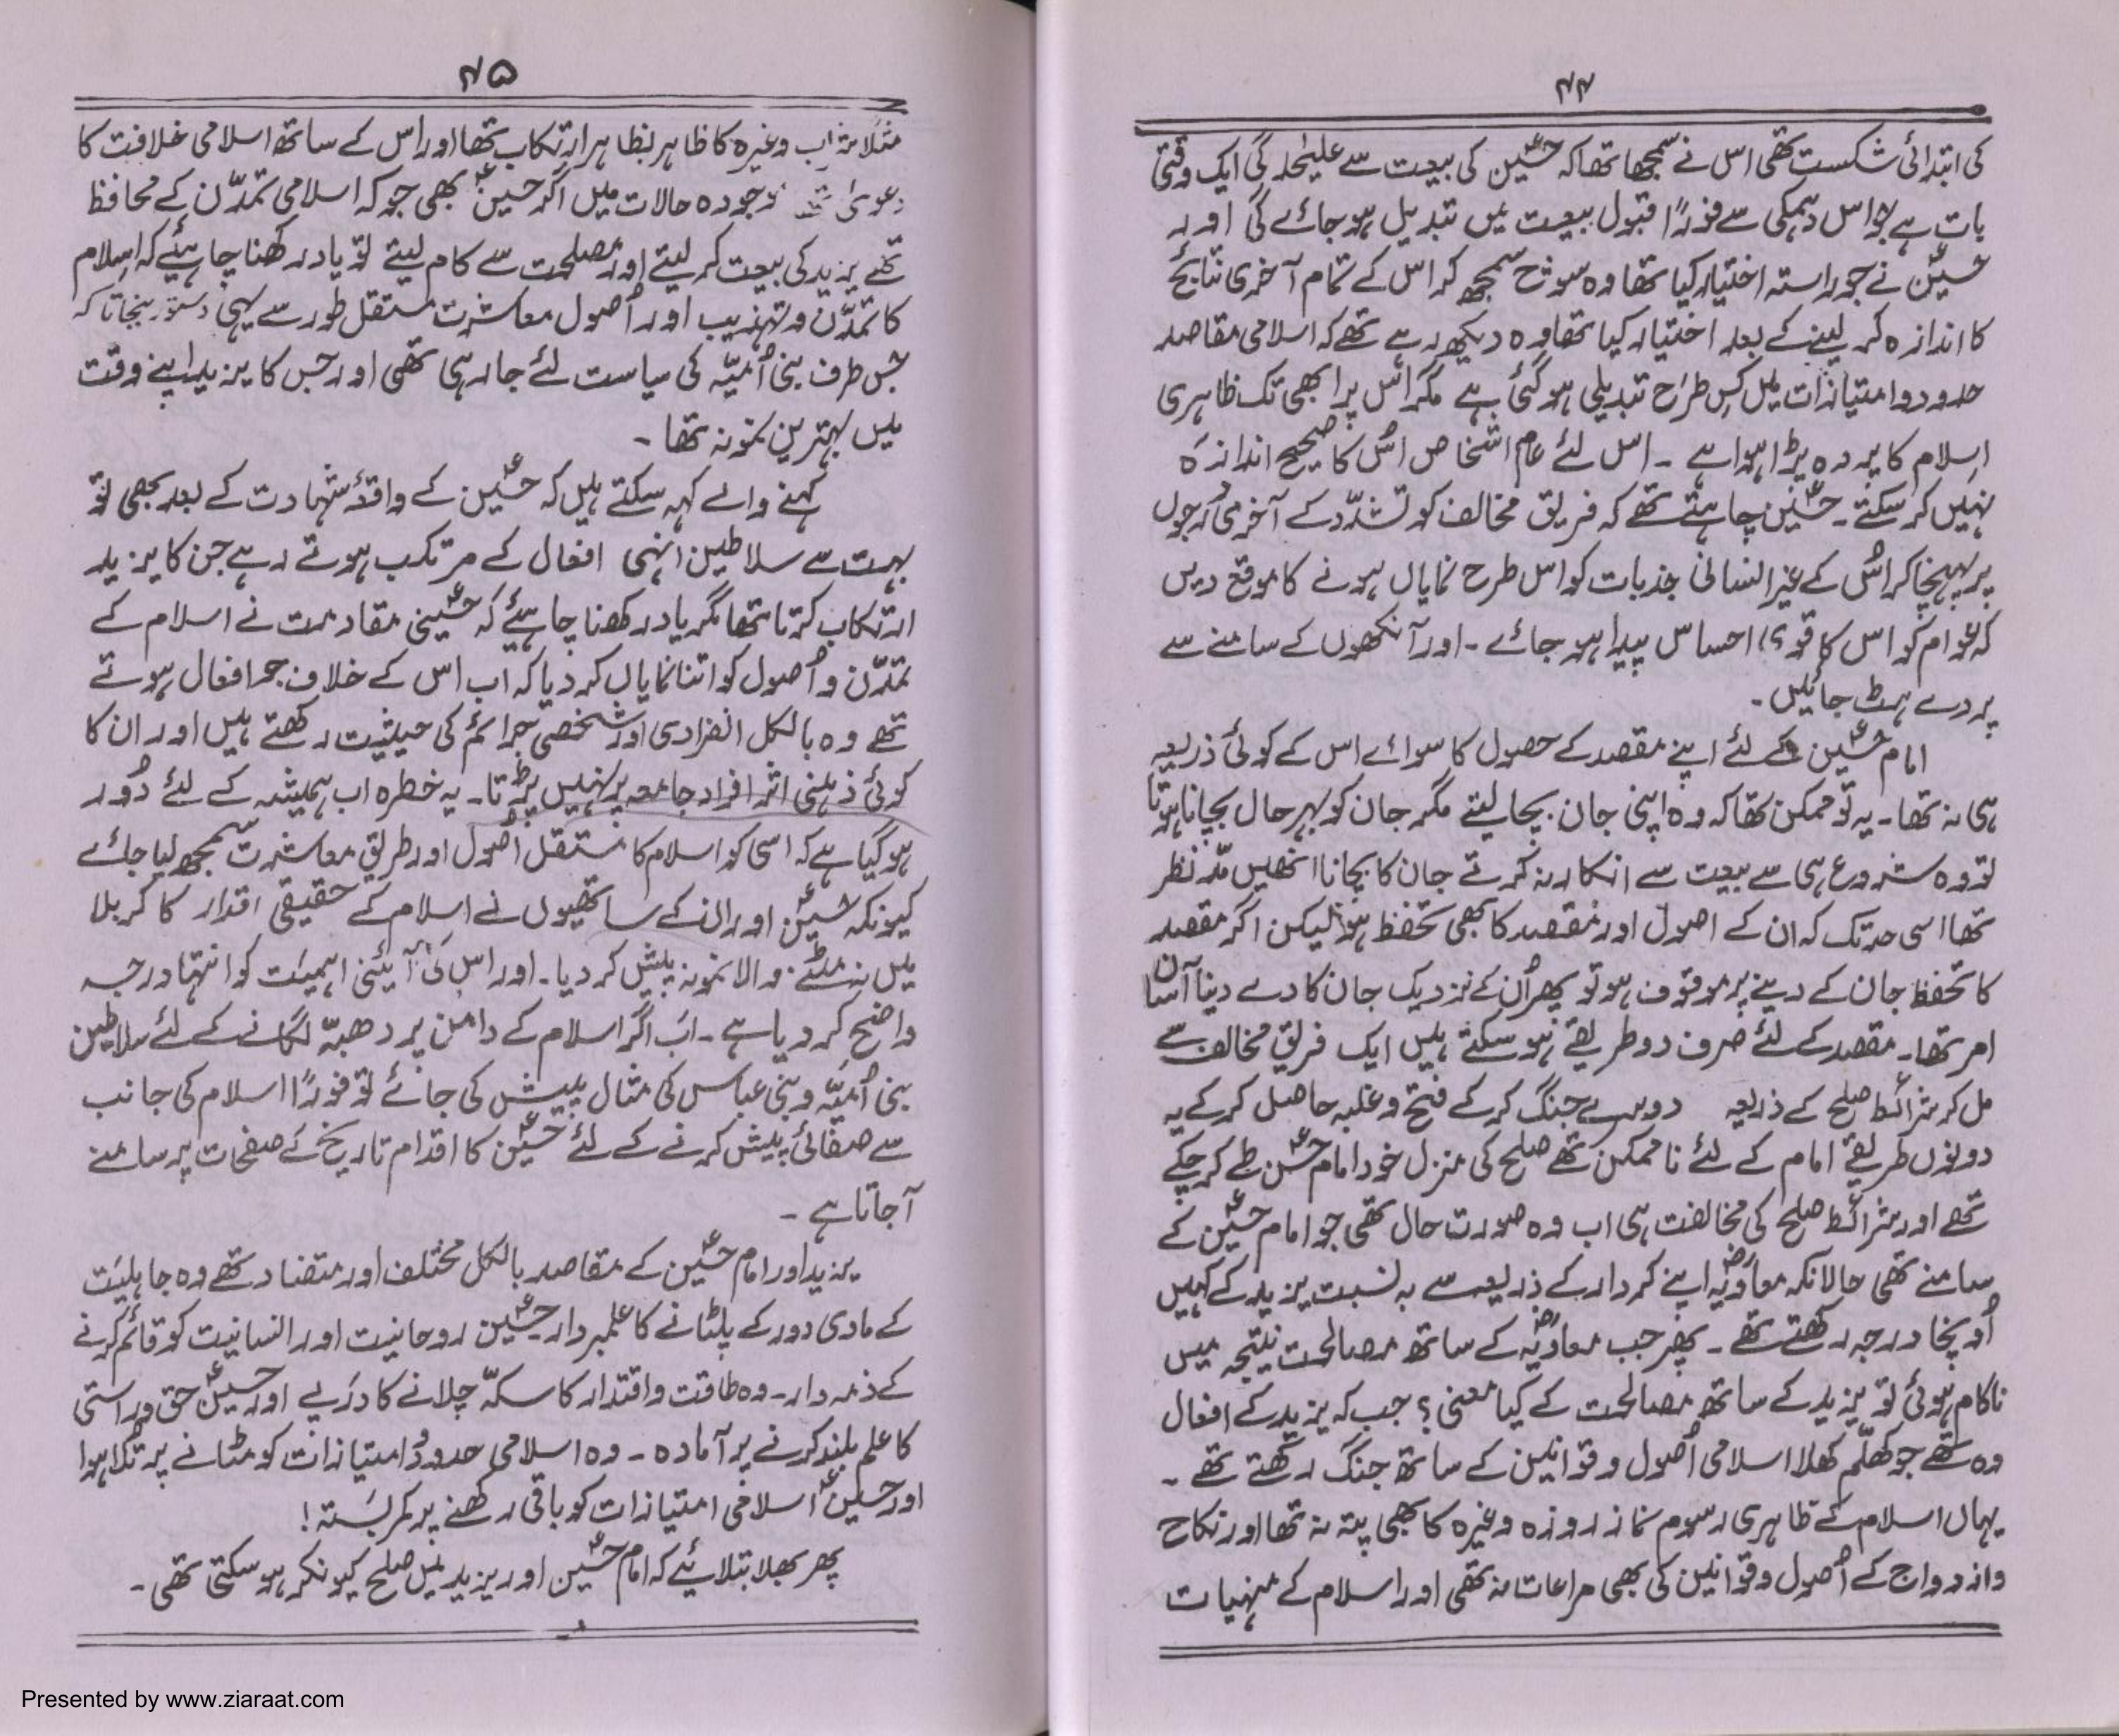 ۴۴
کی ابتدائی شکست تھی اس نے سمجھا تھا کہ حسینؑ کی بیعت سے علیٰحدگی ایک وقتی
بات ہے جو اس دہمکی سے فوراً قبول بیعت میں تبدیل ہو جائے گی اور
حسینؑ نے جو راستہ اختیار کیا تھا وہ سونچ سمجھ کر اس کے تمام آخری نتائج
کا اندازہ کر لینے کے بعد اختیار کیا تھا وہ دیکھ رہے تھے کہ اسلامی مقاصد
حدود و امتیازات میں کس طرح تبدیلی ہو گئی ہے مگر اس پر ابھی تک ظاہری
اسلام کا پردہ پڑا ہوا ہے ۔ اس لئے عام اشخاص اُس کا صحیح اندازہ
نہیں کر سکتے ۔ حسینؑ چاہتے تھے کہ فریق مخالف کو تشدّد کے آخری درجوں
پر پہنچا کر اُس کے غیر انسانی جذبات کو اس طرح نمایاں ہونے کا موقع دیں
کہ عوام کو اس کا قوی احساس پیدا ہو جائے ۔ اور آنکھوں کے سامنے سے
پردے ہٹ جائیں ۔
امام حسینؑ کے لئے اپنے مقصد کے حصول کا سوائے اس کے کوئی ذریعہ
ہی نہ تھا ۔ یہ تو ممکن تھا کہ وہ اپنی جان بچا لیتے مگر جان کو بہرحال بچانا ہوتا
تو وہ شروع ہی سے بیعت سے انکار نہ کرتے جان کا بچانا انھیں مدّ نظر
تھا اسی حد تک کہ ان کے اصول اور مقصد کا بھی تحفظ ہو لیکن اگر مقصد
کا تحفظ جان کے دینے پر موقوف ہو تو پھر اُن کے نزدیک جان کا دے دینا آسان
امر تھا ۔ مقصد کے لئے صرف دو طریقے ہو سکتے ہیں ایک فریق مخالف سے
مل کر شرائط صلح کے ذریعہ دوسرے جنگ کر کے فتح و غلبہ حاصل کر کے یہ
دونوں طریقے امام کے لئے ناممکن تھے صلح کی منزل خود امام حسنؑ طے کر چکے
تھے اور شرائط صلح کی مخالفت ہی اب وہ صورت حال تھی جو امام حسینؑ کے
سامنے تھی حالانکہ معاویہؓ اپنے کردار کے ذریعہ سے بہ نسبت یزید کے کہیں
اُونچا درجہ رکھتے تھے ۔ پھر جب معاویہؓ کے ساتھ مصالحت نتیجہ میں
ناکام ہوئی تو یزید کے ساتھ مصالحت کے کیا معنی ؟ جب کہ یزید کے افعال
وہ تھے جو کھلّم کھلا اسلامی اُصول و قوانین کے ساتھ جنگ رکھتے تھے ۔
یہاں اسلام کے ظاہری رسوم نماز روزہ وغیرہ کا بھی پتہ نہ تھا اور نکاح
و ازدواج کے اُصول و قوانین کی بھی مراعات نہ تھی اور اسلام کے منہیات
۴۵
مثلاً شراب وغیرہ کا ظاہر بظاہر ارتکاب تھا اور اس کے ساتھ اسلامی خلافت کا
دعویٰ موجودہ حالات میں اگر حسینؑ بھی جو کہ اسلامی تمدّن کے محافظ
تھے یزید کی بیعت کر لیتے اور مصلحت سے کام لیتے تو یاد رکھنا چاہئیے کہ اسلام
کا تمدّن و تہذیب اور اُصول معاشرت مستقل طور سے یہی دستور بنجاتا کہ
جس طرف بنی اُمیّہ کی سیاست لئے جا رہی تھی اور جس کا یزید اپنے وقت
میں بہترین نمونہ تھا ۔
کہنے والے کہہ سکتے ہیں کہ حسینؑ کے واقعۂ شہادت کے بعد بھی تو
بہت سے سلاطین انہی افعال کے مرتکب ہوتے رہے جن کا یزید
ارتکاب کرتا تھا مگر یاد رکھنا چاہئیے کہ حسینیؑ مقاومت نے اسلام کے
تمدّن و اُصول کو اتنا نمایاں کر دیا کہ اب اس کے خلاف جو افعال ہوتے
تھے وہ بالکل انفرادی اور شخصی جرائم کی حیثیت رکھتے ہیں اور ان کا
کوئی ذہنی اثر افراد جامعہ پر نہیں پڑتا ۔ یہ خطرہ اب ہمیشہ کے لئے دُور
ہو گیا ہے کہ اسی کو اسلام کا مستقل اُصول اور طریق معاشرت سمجھ لیا جائے
کیونکہ حسینؑ اور ان کے ساتھیوں نے اسلام کے حقیقی اقدار کا کربلا
میں نہ مٹنے والا نمونہ پیش کر دیا ۔ اور اس کی آئینی اہمیت کو انتہا درجہ
واضح کر دیا ہے ۔ اب اگر اسلام کے دامن پر دھبّہ لگانے کے لئے سلاطین
بنی اُمیّہ و بنی عباس کی مثال پیش کی جائے تو فوراً اسلام کی جانب
سے صفائی پیش کرنے کے لئے حسینؑ کا اقدام تاریخ کے صفحات پر سامنے
آجاتا ہے ۔
یزید اور امام حسینؑ کے مقاصد بالکل مختلف اور متضاد تھے وہ جاہلیت
کے مادی دور کے پلٹانے کا علمبردار حسینؑ روحانیت اور انسانیت کو قائم کرنے
کے ذمہ دار ۔ وہ طاقت و اقتدار کا سکّہ چلانے کا درپے اور حسینؑ حق و راستی
کا علم بلند کرنے پر آمادہ ۔ وہ اسلامی حدود و امتیازات کو مٹانے پر تُلا ہوا
اور حسینؑ اسلامی امتیازات کو باقی رکھنے پر کمربستہ !
پھر بھلا بتلائیے کہ امام حسینؑ اور یزید میں صلح کیونکر ہو سکتی تھی ۔
Presented by www.ziaraat.com